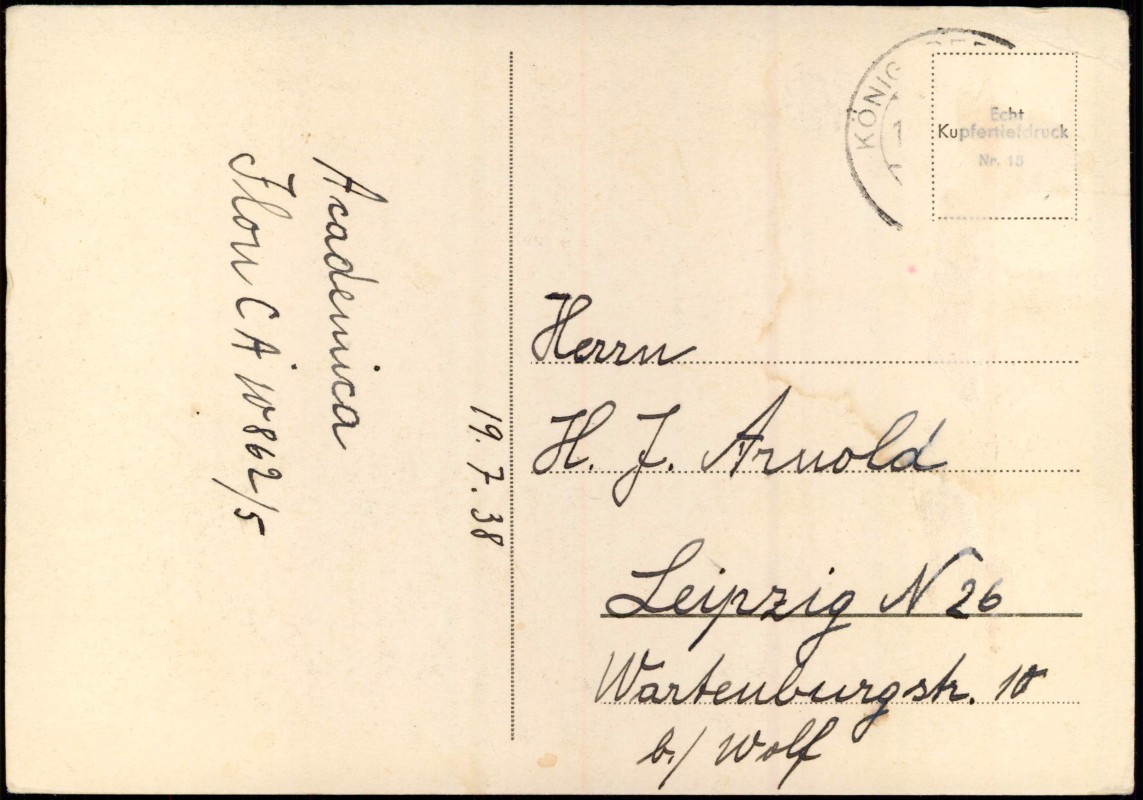 Academica
Flon CA 10862/5
19. 7. 38
KÖNIG
Echt
Kupfertiefdruck
Nr. 15
Herrn
H. J. Arnold
Leipzig N 26
Wartenburgstr. 10
b./ Wolf